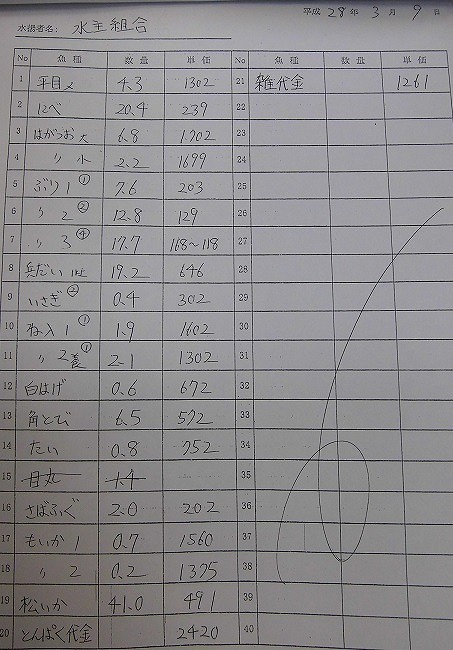 平成 28 年 3 月 9 日
水揚者名: 水主組合
No 魚種 数量 単価 No 魚種 数量 単価
1 平目〆 4.3 1302 21 雑代金 1261
2 にべ 20.4 239 22
3 はがつお大 6.8 1702 23
4 〃 小 2.2 1699 24
5 ぶり1① 7.6 203 25
6 〃 2② 12.8 129 26
7 〃 3④ 17.7 168〜118 27
8 兵だい 19.2 646 28
9 いさぎ② 0.4 302 29
10 ね入1① 1.9 1602 30
11 〃 2養① 2.1 1302 31
12 白はげ 0.6 672 32
13 角とび 6.5 572 33
14 たい 0.8 752 34
15 目丸 1.4 35
16 さばふぐ 2.0 202 36
17 もいか1 0.7 1560 37
18 〃 2 0.2 1375 38
19 松いか 41.0 491 39
20 とんぱく代金 2420 40